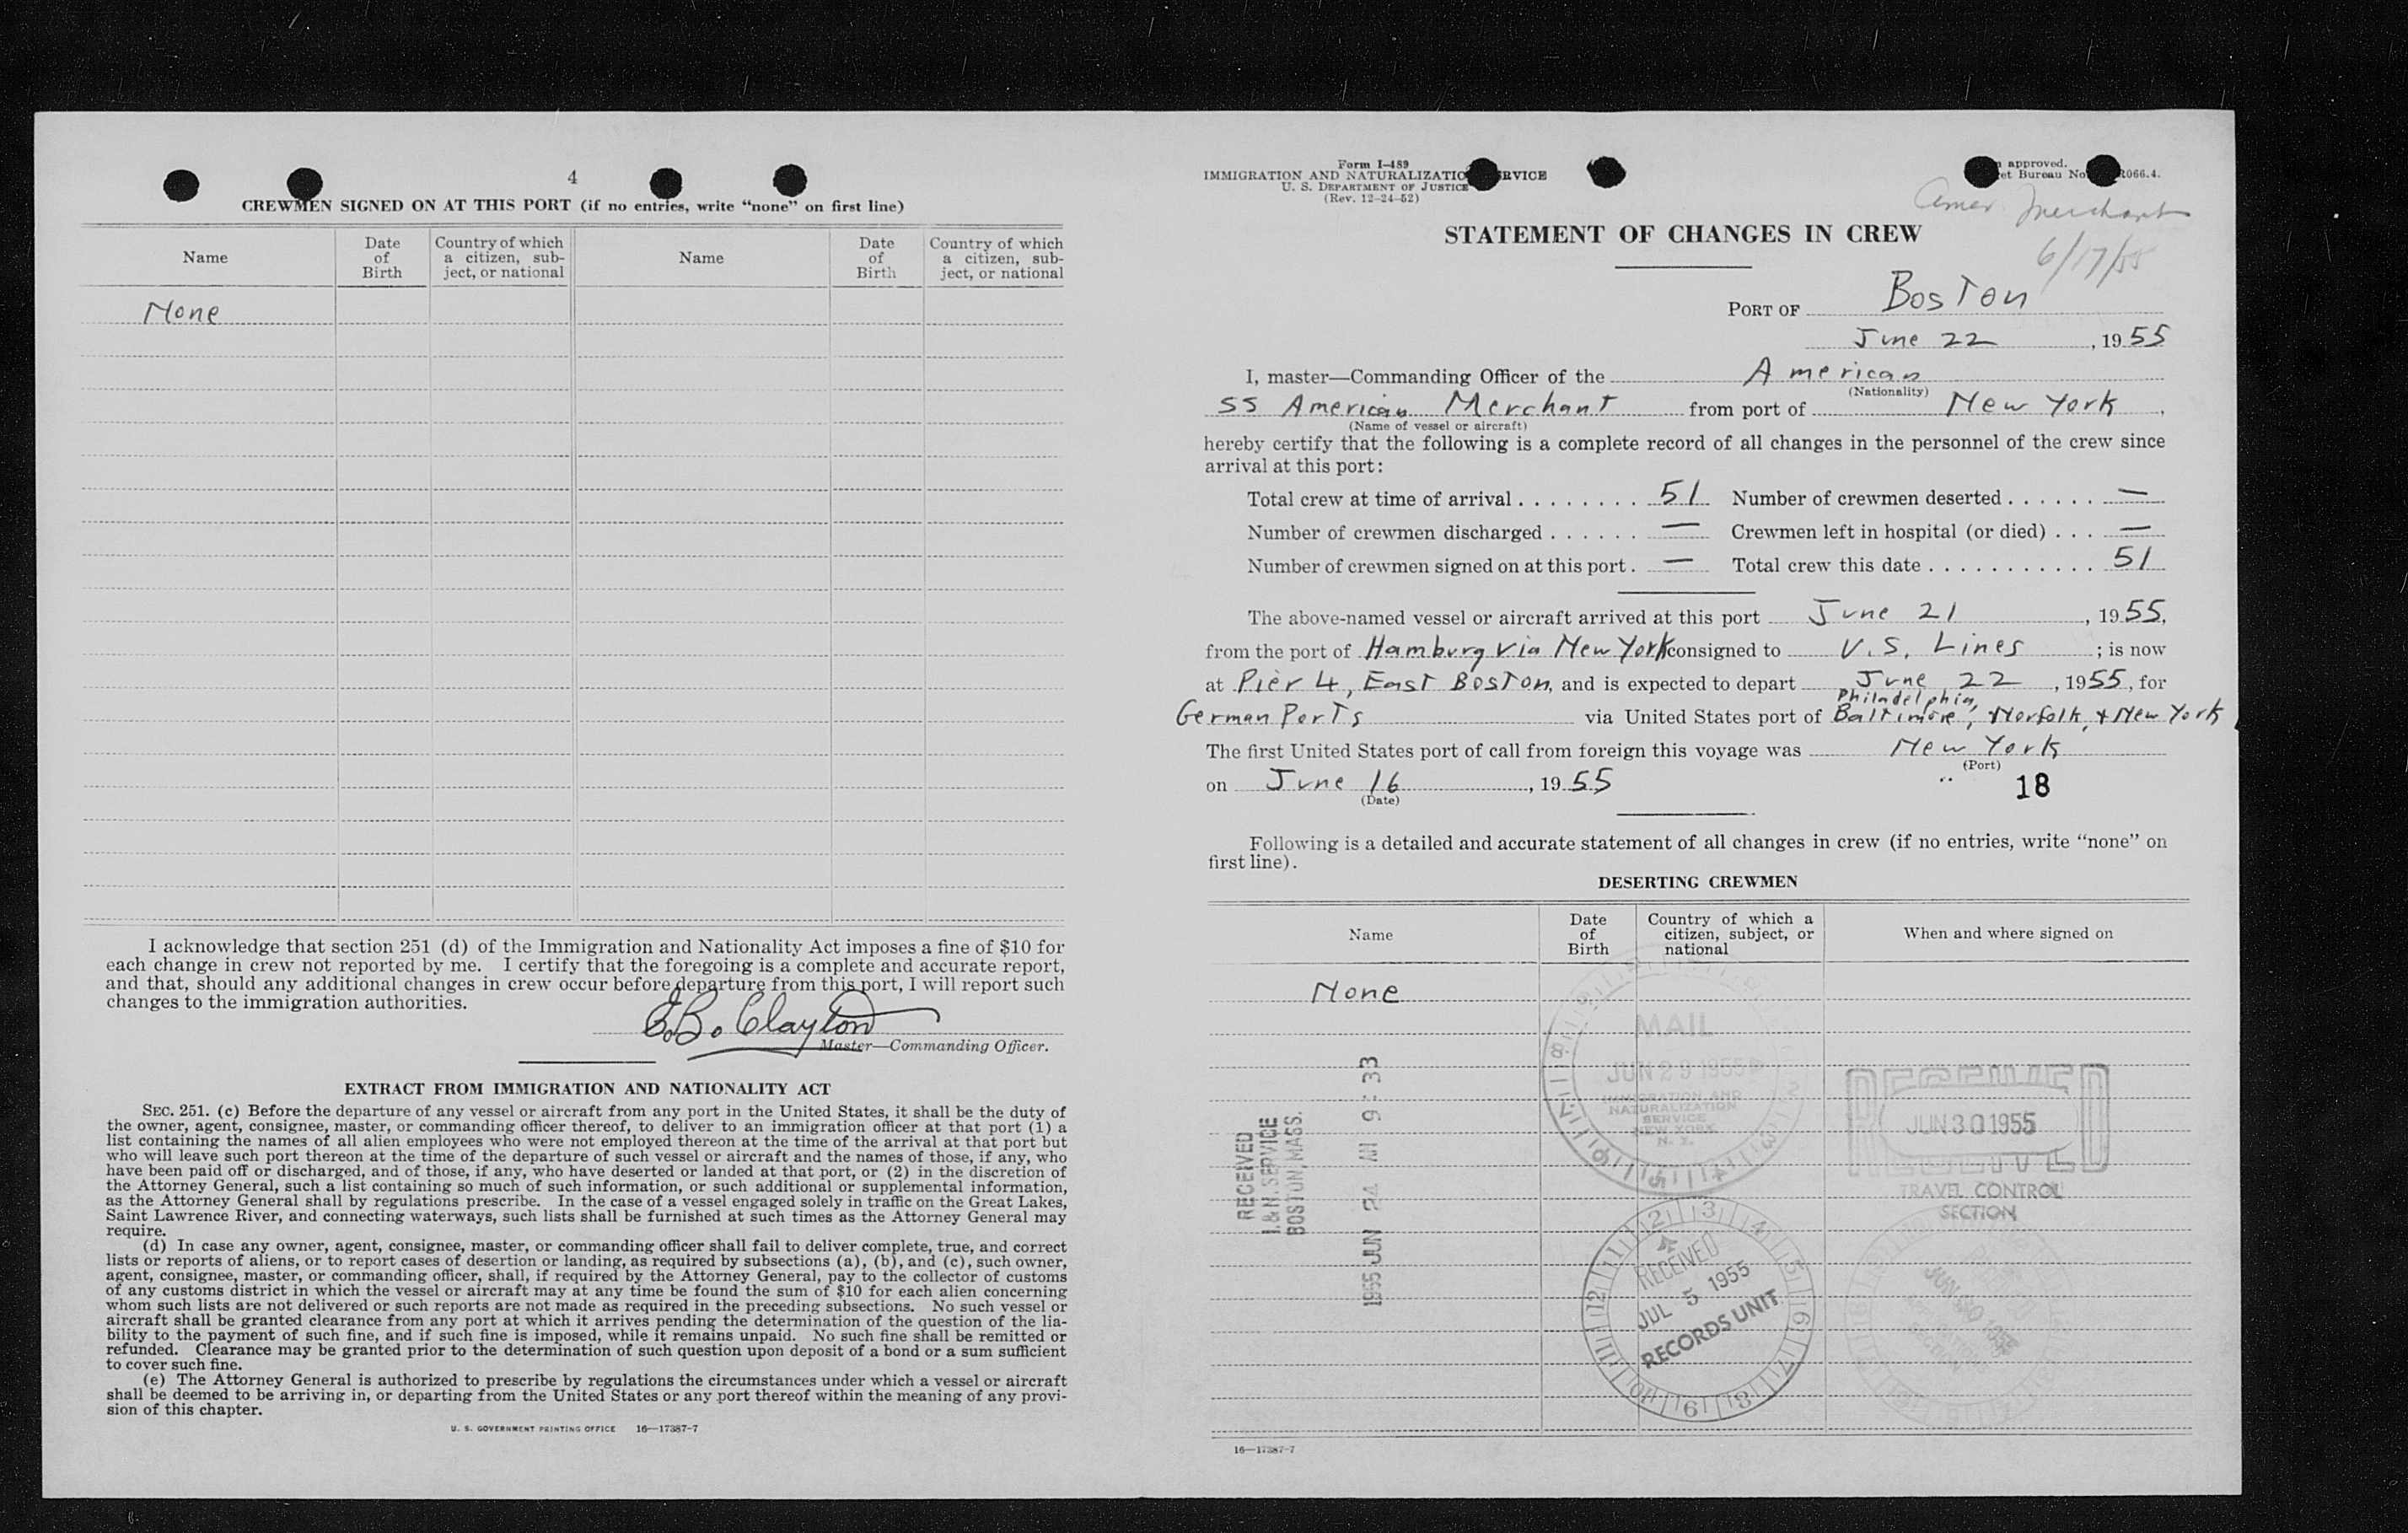 4
CREWMEN SIGNED ON AT THIS PORT (if no entries, write “none” on first line)
Name
Date of Birth
Country of which a citizen, subject, or national
Name
Date of Birth
Country of which a citizen, subject, or national
None
I acknowledge that section 251 (d) of the Immigration and Nationality Act imposes a fine of $10 for
each change in crew not reported by me. I certify that the foregoing is a complete and accurate report,
and that, should any additional changes in crew occur before departure from this port, I will report such
changes to the immigration authorities.
E.B. Clayton
Master—Commanding Officer.
EXTRACT FROM IMMIGRATION AND NATIONALITY ACT
SEC. 251. (c) Before the departure of any vessel or aircraft from any port in the United States, it shall be the duty of
the owner, agent, consignee, master, or commanding officer thereof, to deliver to an immigration officer at that port (1) a
list containing the names of all alien employees who were not employed thereon at the time of the arrival at that port but
who will leave such port thereon at the time of the departure of such vessel or aircraft and the names of those, if any, who
have been paid off or discharged, and of those, if any, who have deserted or landed at that port, or (2) in the discretion of
the Attorney General, such a list containing so much of such information, or such additional or supplemental information,
as the Attorney General shall by regulations prescribe. In the case of a vessel engaged solely in traffic on the Great Lakes,
Saint Lawrence River, and connecting waterways, such lists shall be furnished at such times as the Attorney General may
require.
(d) In case any owner, agent, consignee, master, or commanding officer shall fail to deliver complete, true, and correct
lists or reports of aliens, or to report cases of desertion or landing, as required by subsections (a), (b), and (c), such owner,
agent, consignee, master, or commanding officer, shall, if required by the Attorney General, pay to the collector of customs
of any customs district in which the vessel or aircraft may at any time be found the sum of $10 for each alien concerning
whom such lists are not delivered or such reports are not made as required in the preceding subsections. No such vessel or
aircraft shall be granted clearance from any port at which it arrives pending the determination of the question of the lia-
bility to the payment of such fine, and if such fine is imposed, while it remains unpaid. No such fine shall be remitted or
refunded. Clearance may be granted prior to the determination of such question upon deposit of a bond or a sum sufficient
to cover such fine.
(e) The Attorney General is authorized to prescribe by regulations the circumstances under which a vessel or aircraft
shall be deemed to be arriving in, or departing from the United States or any port thereof within the meaning of any provi-
sion of this chapter.
U. S. GOVERNMENT PRINTING OFFICE 16—17387-7
Form I-489
IMMIGRATION AND NATURALIZATIO RVICE
U. S. DEPARTMENT OF JUSTICE
(Rev. 12-24-52)
approved.
et Bureau No R066.4.
Amer. Merchant
6/17/55
STATEMENT OF CHANGES IN CREW
PORT OF Boston
June 22, 1955
I, master—Commanding Officer of the American
(Nationality)
SS American Merchant from port of New York,
(Name of vessel or aircraft)
hereby certify that the following is a complete record of all changes in the personnel of the crew since
arrival at this port:
Total crew at time of arrival . . . . . . . . 51 Number of crewmen deserted . . . . . . —
Number of crewmen discharged . . . . . . — Crewmen left in hospital (or died) . . . —
Number of crewmen signed on at this port . — Total crew this date . . . . . . . . . . . . 51
The above-named vessel or aircraft arrived at this port June 21, 1955,
from the port of Hamburg via New York consigned to U.S. Lines ; is now
at Pier 4, East Boston, and is expected to depart June 22, 1955, for
Philadelphia,
German Ports via United States port of Baltimore, Norfolk, & New York
The first United States port of call from foreign this voyage was New York
(Port)
on June 16, 1955
(Date)
18
Following is a detailed and accurate statement of all changes in crew (if no entries, write “none” on
first line).
DESERTING CREWMEN
Name
Date of Birth
Country of which a citizen, subject, or national
When and where signed on
None
MAIL
JUN 29 1955
IMMIGRATION AND
NATURALIZATION
SERVICE
NEW YORK
N. Y.
RECEIVED
I. & N. SERVICE
BOSTON, MASS.
1955 JUN 24 AM 9:33
RECEIVED
JUN 30 1955
TRAVEL CONTROL
SECTION
RECEIVED
JUL 5 1955
RECORDS UNIT
JUN 30 1955
16—17387-7